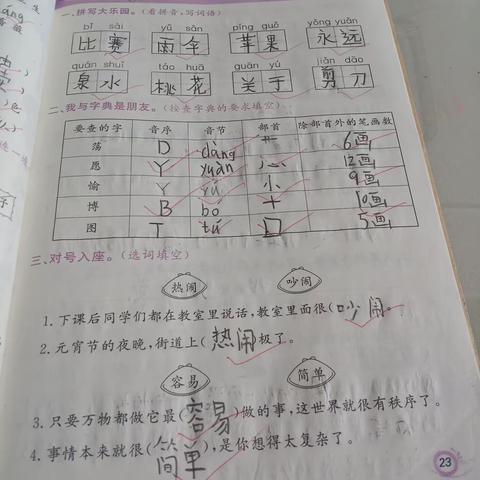 一、拼写大乐园。（看拼音，写词语）
bǐ sài yǔ sǎn píng guǒ yǒng yuǎn
比赛 雨伞 苹果 永远
quán shuǐ táo huā guān yú jiǎn dāo
泉水 桃花 关于 剪刀
二、我与字典是朋友。（按查字典的要求填空）
要查的字 音序 音节 部首 除部首外的笔画数
荡 D dàng 艹 6画
愿 Y yuàn 心 12画
愉 Y yú 忄 9画
博 B bó 十 10画
图 T tú 口 5画
三、对号入座。（选词填空）
热闹 吵闹
1. 下课后同学们都在教室里说话，教室里面很（吵闹。
2. 元宵节的夜晚，街道上（热闹）极了。
容易 简单
3. 只要万物都做它最（容易）做的事，这世界就很有秩序了。
4. 事情本来就很（简单），是你想得太复杂了。
23